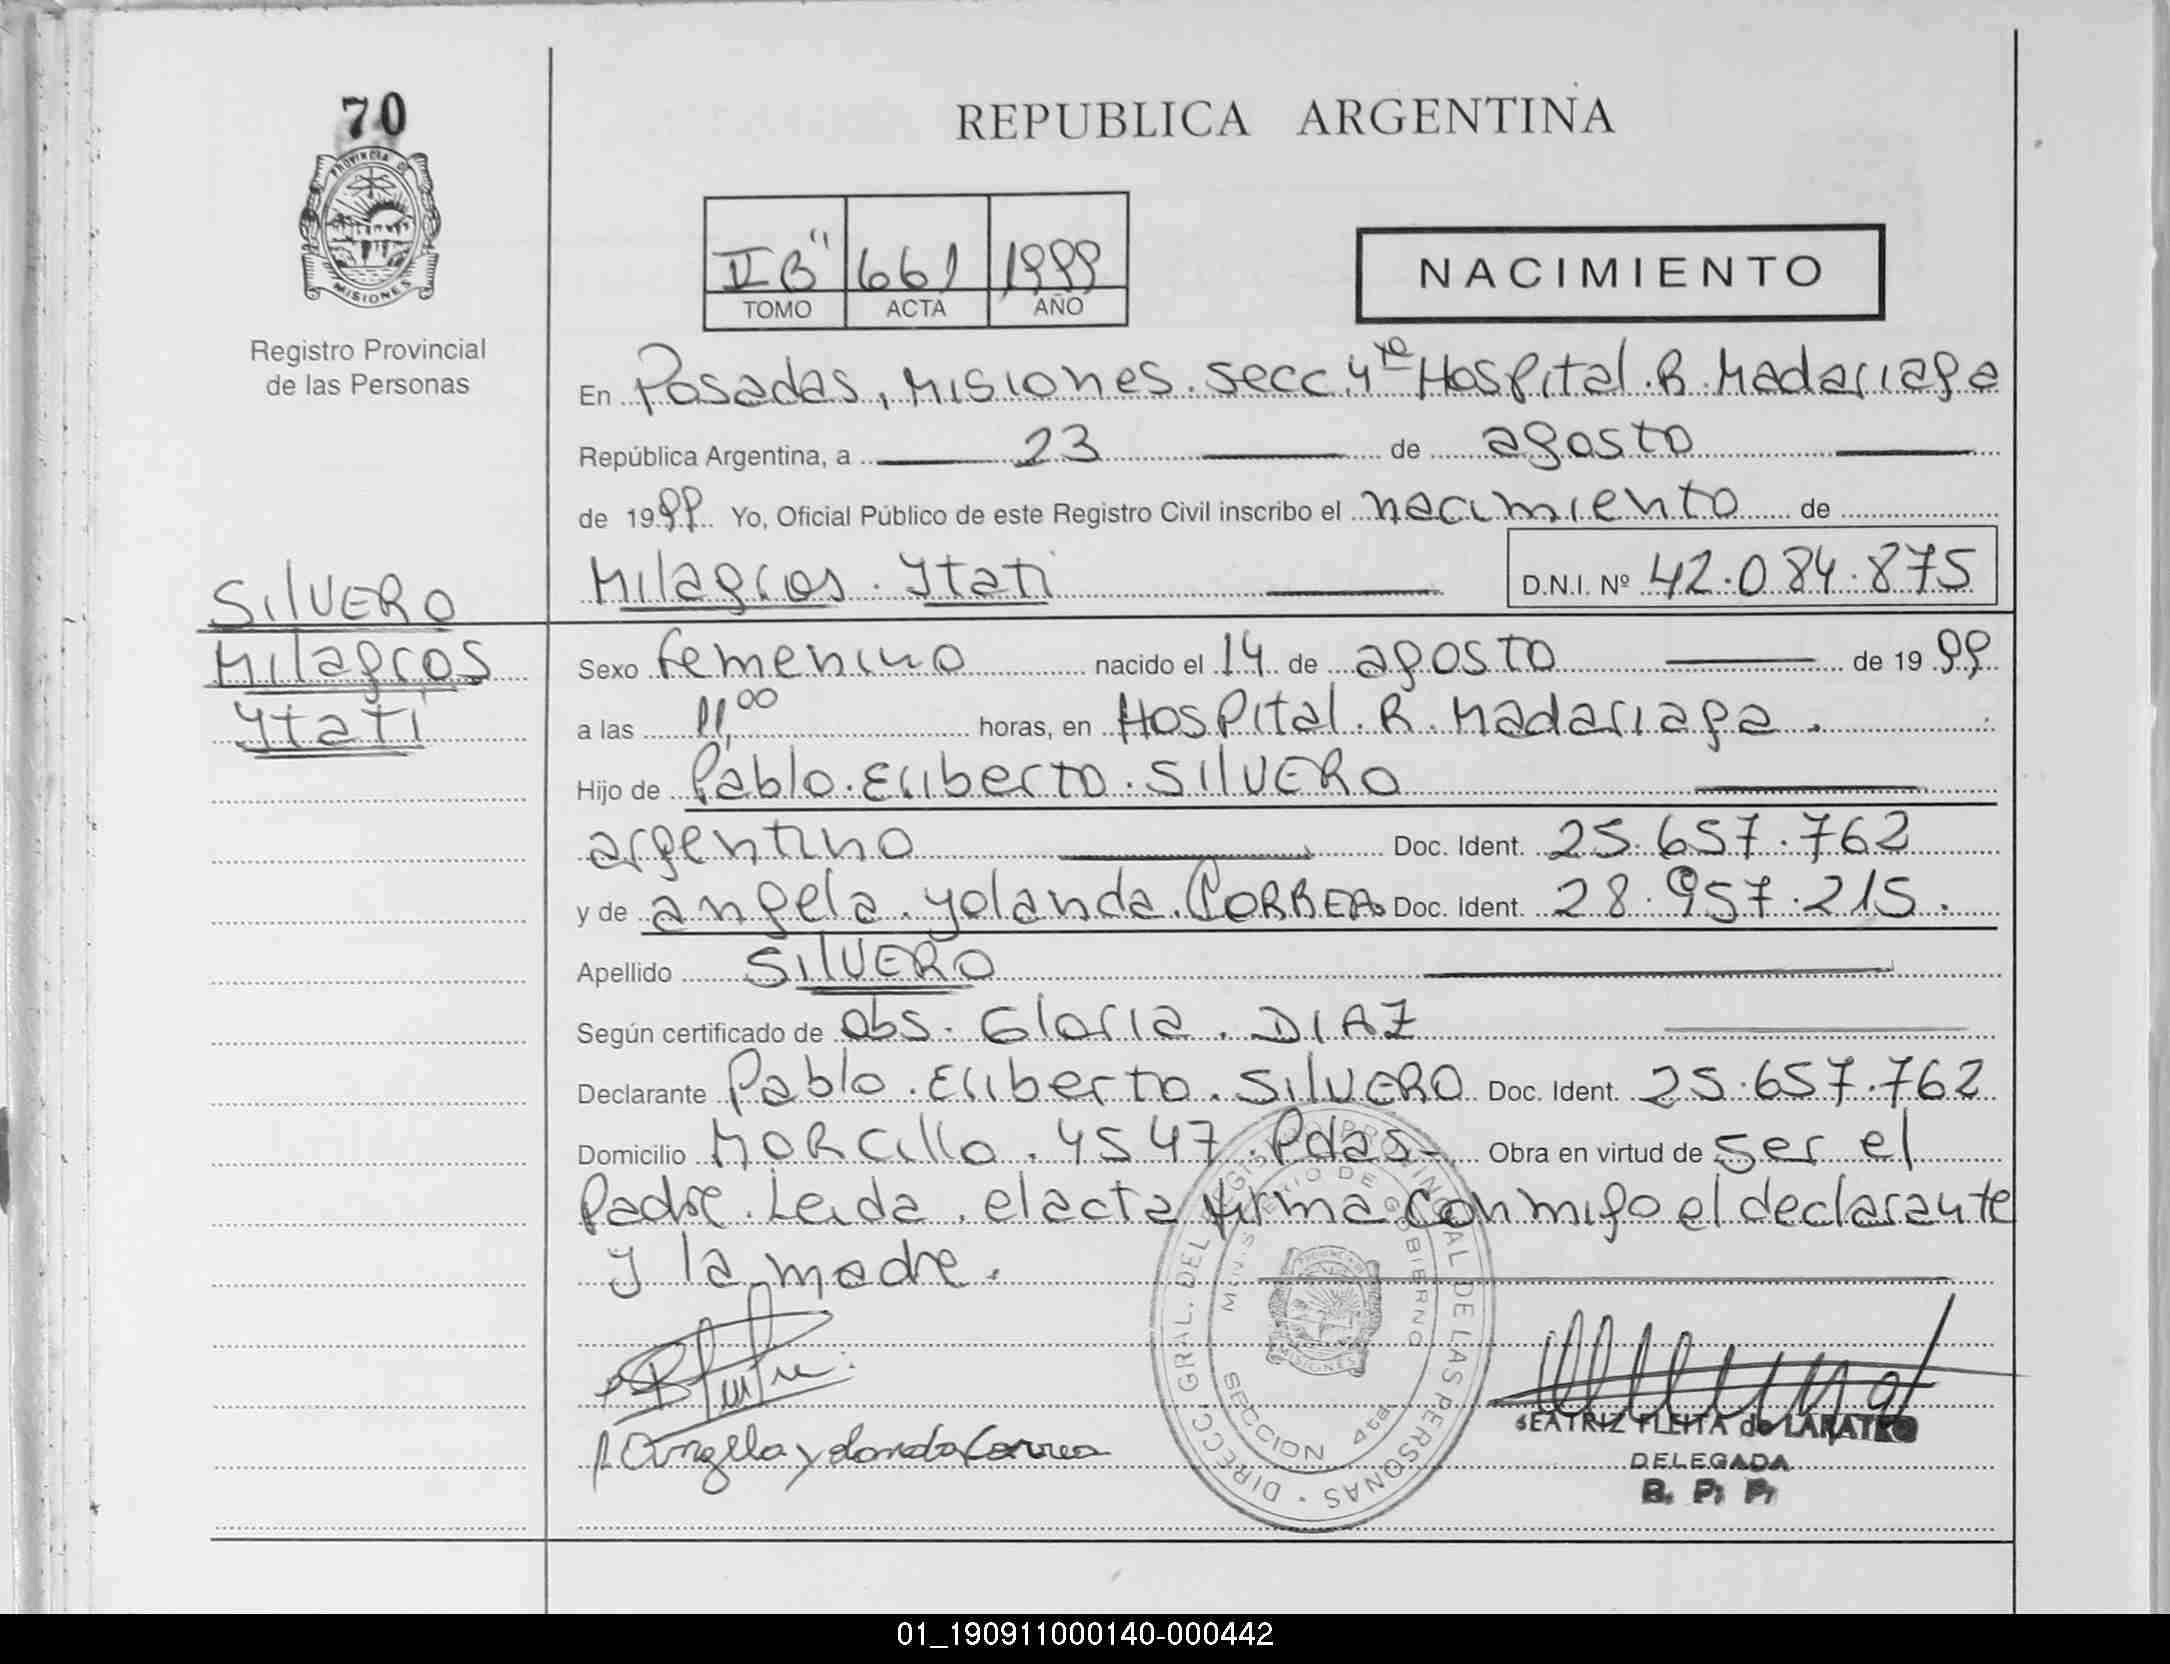 70
REPUBLICA ARGENTINA
PROVINCIA DE
MISIONES
II B" 661 1999
TOMO ACTA AÑO
NACIMIENTO
Registro Provincial
de las Personas
En Posadas, Misiones. Secc. 4ta Hospital. R. Madariaga
República Argentina, a 23 de agosto
de 1999 Yo, Oficial Público de este Registro Civil inscribo el nacimiento de
Milagros. Ytati D.N.I. Nº 42.084.875
SILVERO
Milagros
Ytati
Sexo femenino nacido el 14 de agosto de 1999
a las 11,00 horas, en Hospital. R. Madariaga.
Hijo de Pablo. Eliberto. SILVERO
argentino Doc. Ident. 25.657.762
y de angela. yolanda. CORREA. Doc. Ident. 28.957.215.
Apellido SILVERO
Según certificado de Obs. Gloria. DIAZ
Declarante Pablo. Eliberto. SILVERO Doc. Ident. 25.657.762
Domicilio Morcillo. 4547. Pdas. Obra en virtud de ser el
Padre. Leida. el acta firma conmigo el declarante
y la madre.
DIRECC. GRAL. DEL REGISTRO PROVINCIAL DE LAS PERSONAS
MINISTERIO DE GOBIERNO
MISIONES
SECCION 4ta
Angela yolanda Correa
BEATRIZ FLEITA de LARATRO
DELEGADA
R. P. P.
01_190911000140-000442